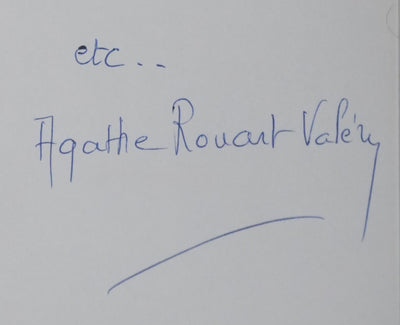 etc..
Agathe Rouart Valéry